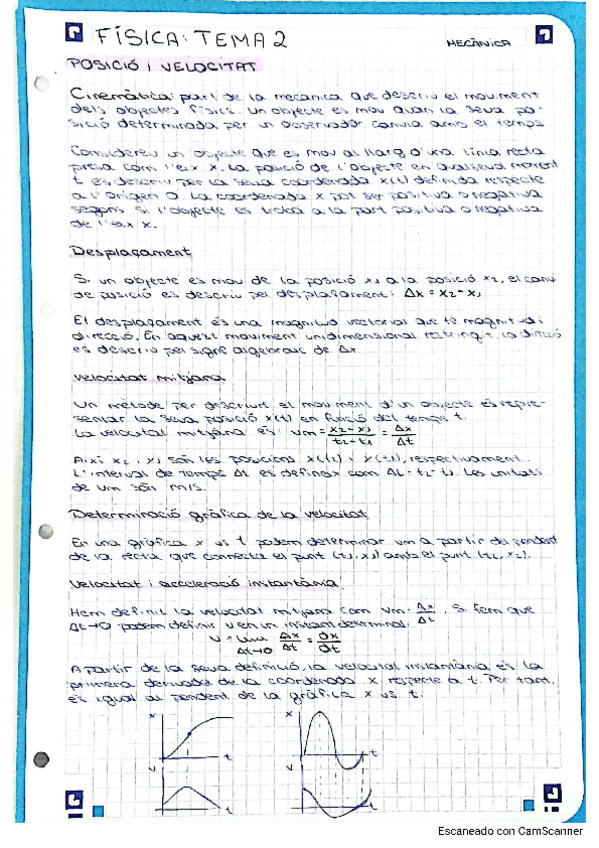 FÍSICA: TEMA 2
MECÀNICA
POSICIÓ I VELOCITAT
Cinemàtica: part de la mecànica que descriu el moviment
dels objectes físics. Un objecte es mou quan la seva po-
sició determinada per un observador canvia amb el temps
Considereu un objecte que es mou al llarg d'una línia recta
presa com l'eix x. La posició de l'objecte en qualsevol moment
t es descriu per la seva coordenada x(t) definida respecte
a l'origen O. La coordenada x pot ser positiva o negativa
segons si l'objecte es troba a la part positiva o negativa
de l'eix x.
Desplaçament
Si un objecte es mou de la posició x₁ a la posició x₂, el canvi
de posició es descriu pel desplaçament: Δx = x₂ - x₁
El desplaçament és una magnitud vectorial que té magnit. i
direcció. En aquest moviment unidimensional restringit, la direcció
es descriu pel signe algebraic de Δx.
Velocitat mitjana
Un mètode per descriure el moviment d'un objecte és repre-
sentar la seva posició x(t) en funció del temps t.
La velocitat mitjana és: vm = x₂-x₁/t₂-t₁ = Δx/Δt
Així x₂ i x₁ són les posicions x(t₂) i x(t₁), respectivament.
L'interval de temps Δt es defineix com Δt = t₂ - t₁. Les unitats
de vm són m/s.
Determinació gràfica de la velocitat
En una gràfica x vs t podem determinar vm a partir del pendent
de la recta que connecta el punt (t₁, x₁) amb el punt (t₂, x₂).
Velocitat i acceleració instantània
Hem definit la velocitat mitjana com vm = Δx/Δt. Si fem que
Δt→0 podem definir v en un instant determinat.
v = lim Δt→0 Δx/Δt = dx/dt
A partir de la seva definició, la velocitat instantània és la
primera derivada de la coordenada x respecte a t. Per tant,
és igual al pendent de la gràfica x vs t.
x
t
v
t
x
t
v
t
Escaneado con CamScanner